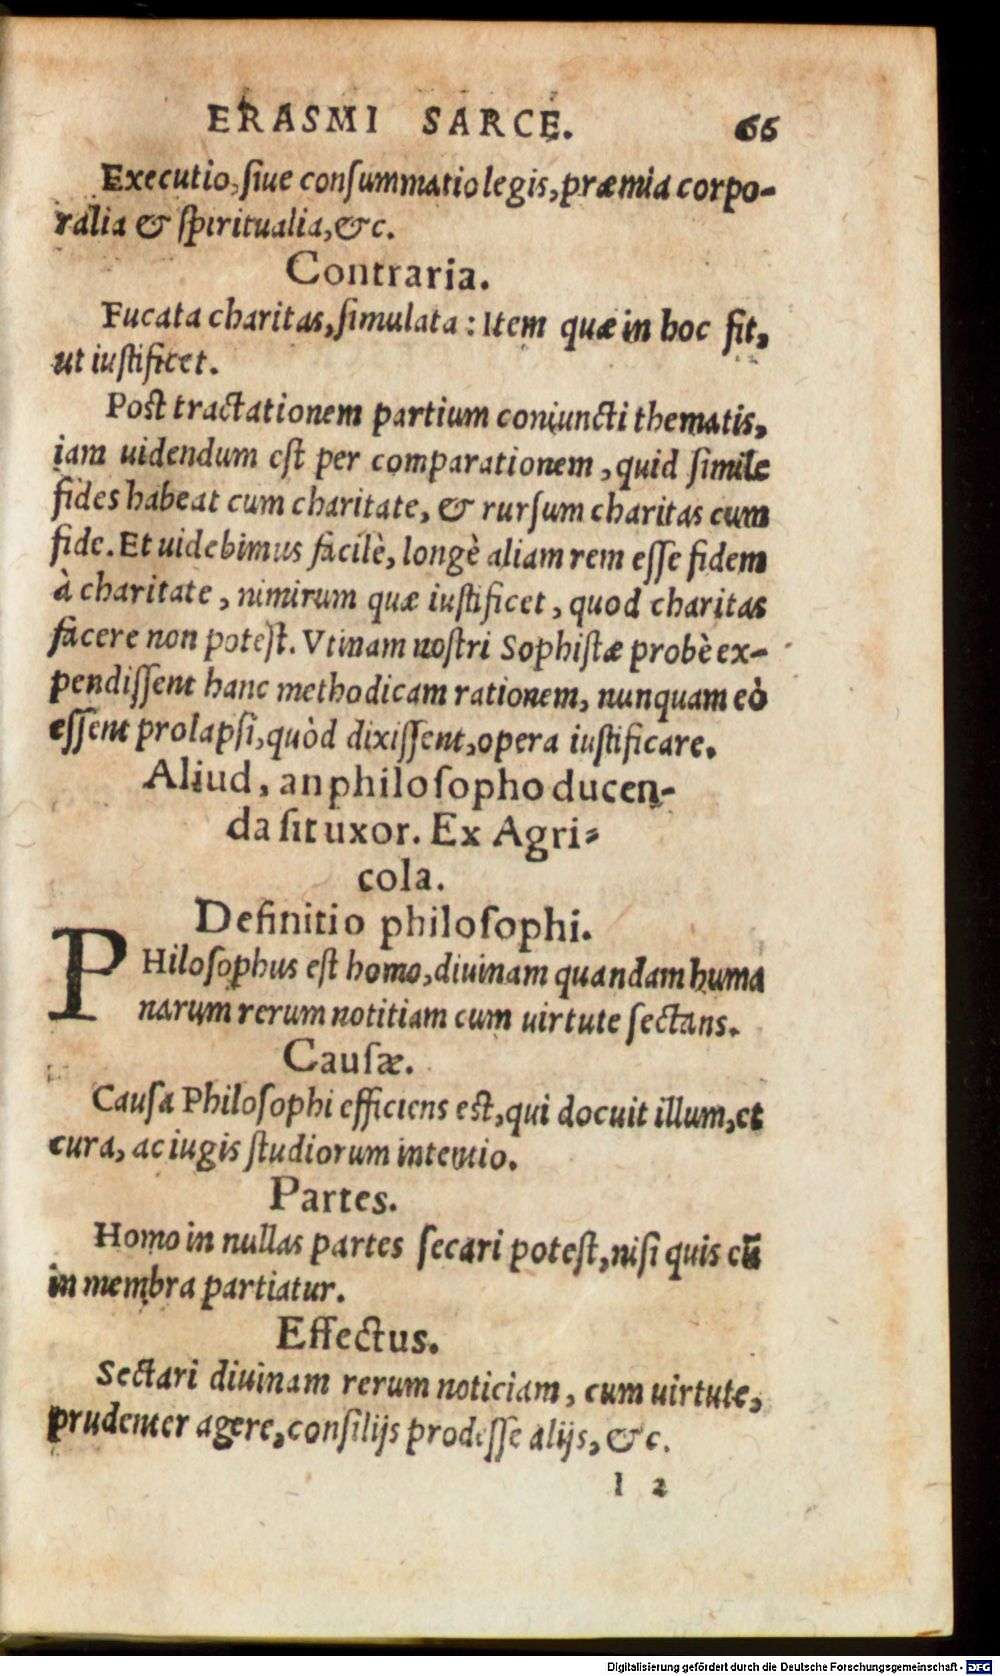 ERASMI SARCE. 66
Executio, siue consummatio legis, præmia corpo-
ralia & spiritualia, &c.
Contraria.
Fucata charitas, simulata: Item quæ in hoc fit,
ut iustificet.
Post tractationem partium coniuncti thematis,
iam uidendum est per comparationem, quid simile
fides habeat cum charitate, & rursum charitas cum
fide. Et uidebimus facilè, longè aliam rem esse fidem
à charitate, nimirum quæ iustificet, quod charitas
facere non potest. Vtinam nostri Sophistæ probè ex-
pendissent hanc methodicam rationem, nunquam eò
essent prolapsi, quòd dixissent, opera iustificare.
Aliud, an philosopho ducen-
da sit uxor. Ex Agri-
cola.
Definitio philosophi.
PHilosophus est homo, diuinam quandam huma
narum rerum notitiam cum uirtute sectans.
Causæ.
Causa Philosophi efficiens est, qui docuit illum, et
cura, ac iugis studiorum intentio.
Partes.
Homo in nullas partes secari potest, nisi quis cũ
in membra partiatur.
Effectus.
Sectari diuinam rerum noticiam, cum uirtute,
prudenter agere, consilijs prodesse alijs, &c.
I 2
Digitalisierung gefördert durch die Deutsche Forschungsgemeinschaft - DFG